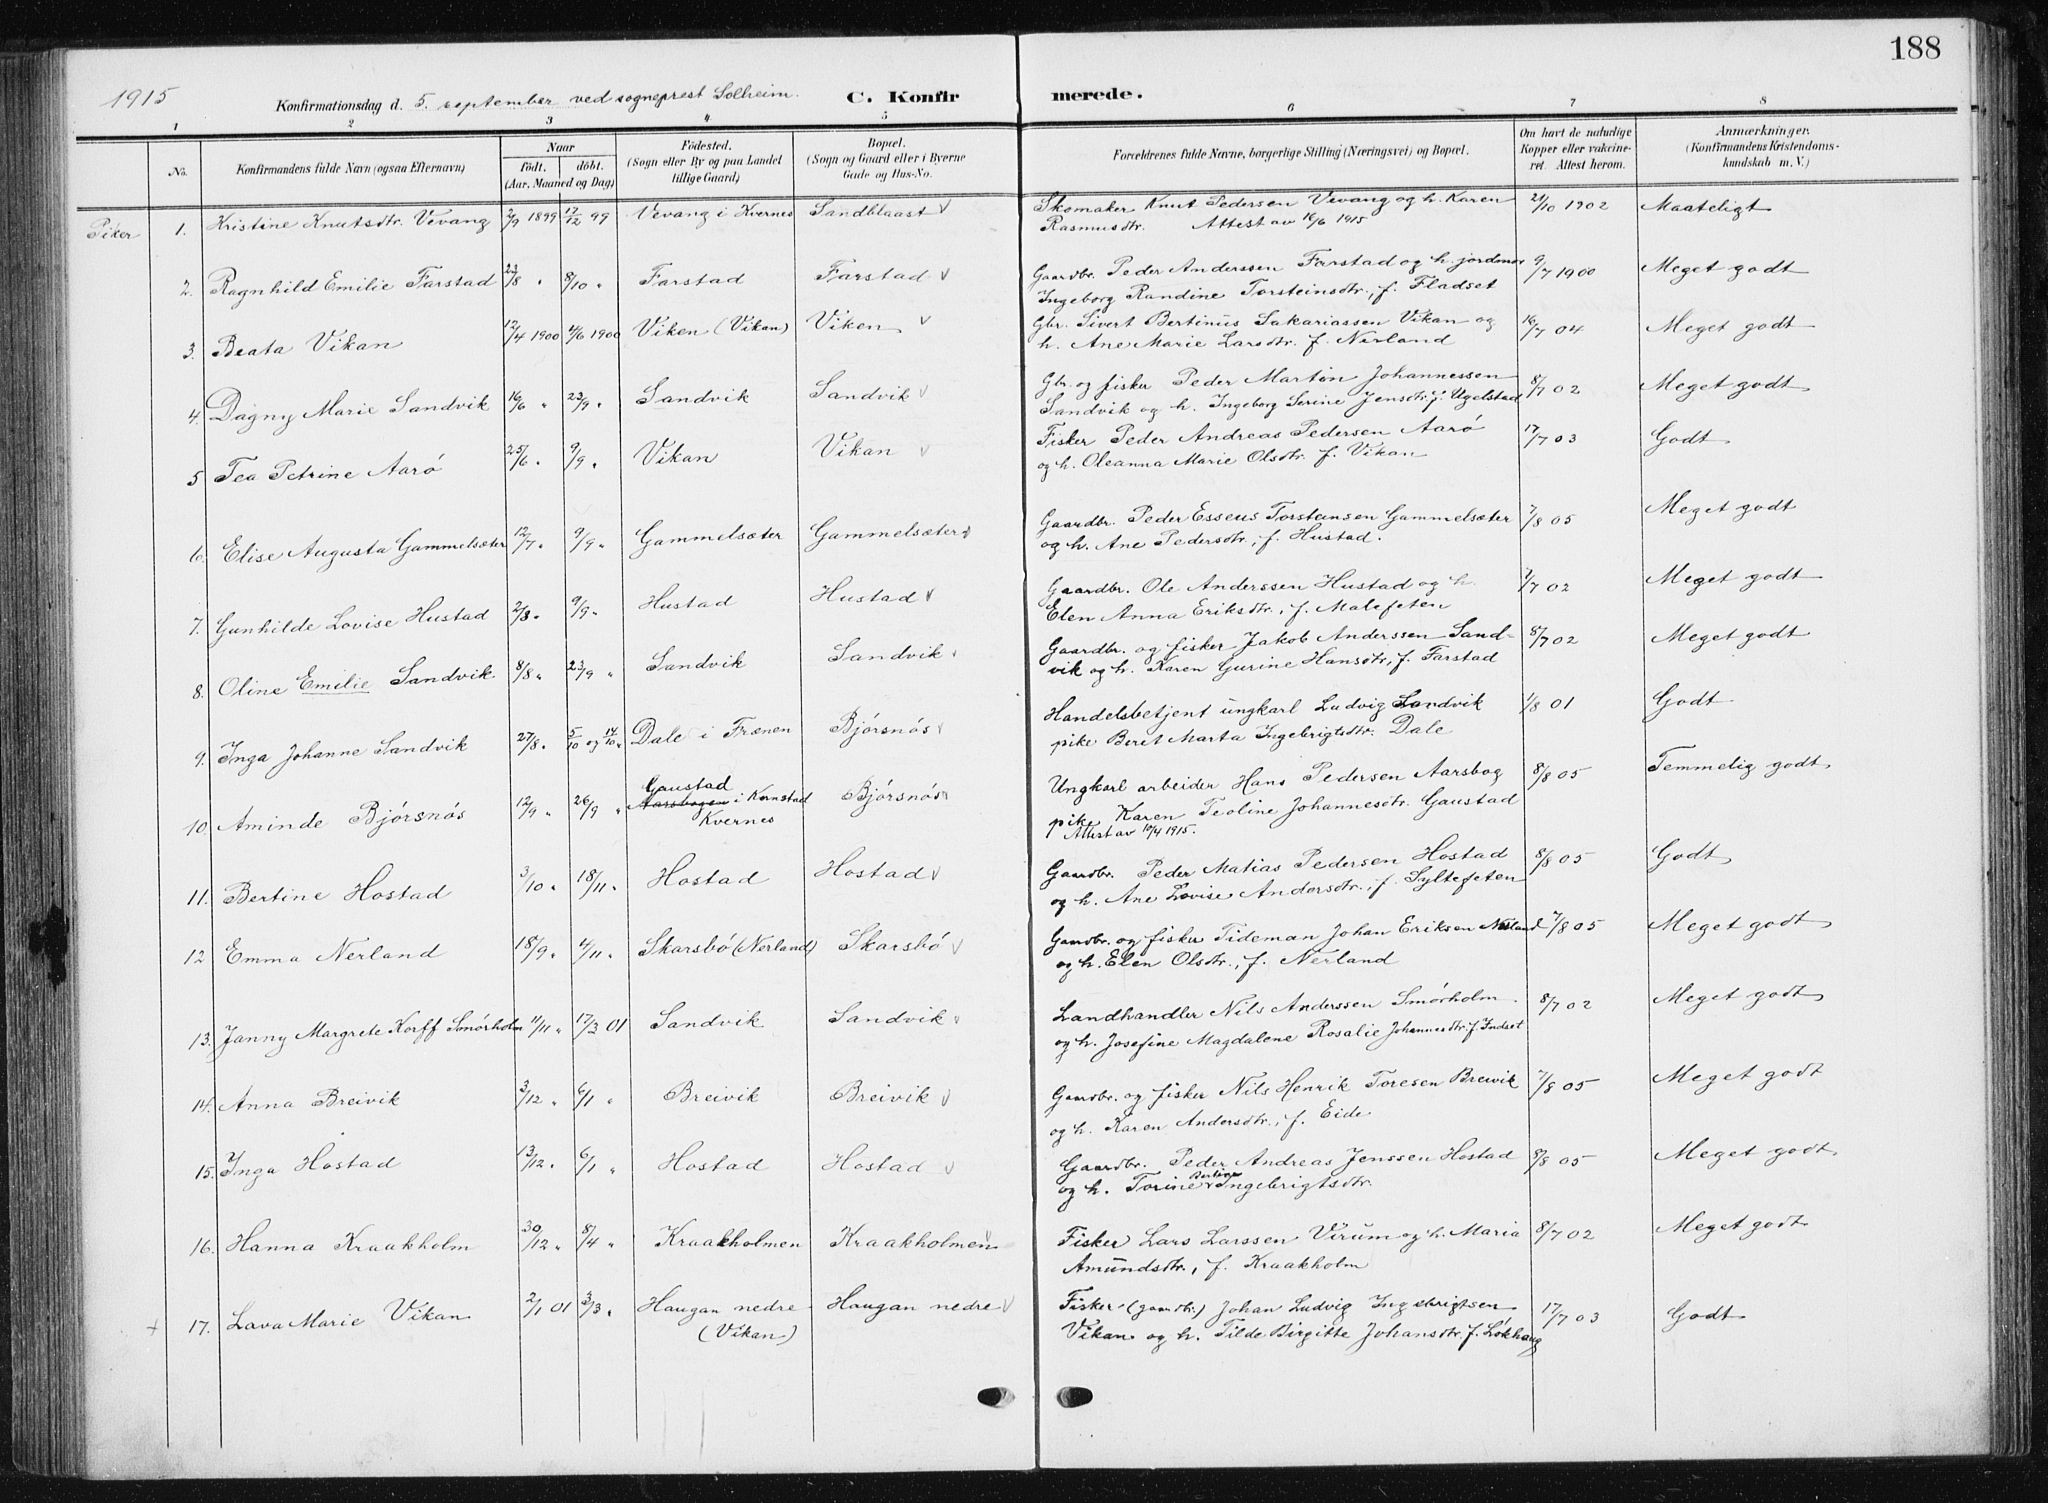 188
1915 Konfirmationsdag d. 5. september ved sogneprest Solheim. C. Konfirmerede.
1 2 3 4 5 6 7 8
No. Konfirmandens fulde Navn (ogsaa Efternavn) Naar født. døbt. (Aar, Maaned og Dag) Fødested. (Sogn eller By og paa Landet tillige Gaard) Bopæl. (Sogn og Gaard eller i Byerne Gade og Hus-No. Forældrenes fulde Navne, borgerlige Stilling (Næringsvei) og Bopæl. Om havt de naturlige Kopper eller vakcineret. Attest herom. Anmærkninger. (Konfirmandens Kristendomskundskab m. V.)
Piker 1. Kristine Knutsdtr. Vevang 2/9 1899 17/12 99 Vevang i Kvernes Sandblaast Skomaker Knut Pedersen Vevang og h. Karen 21/10 1902 Maateligt
Rasmusdtr. Attest av 16/6 1915
2. Ragnhild Emilie Farstad 23/8 " 8/10 " Farstad Farstad Gaardbr. Peder Anderssen Farstad og h. jordmor 9/7 1900 Meget godt
Ingeborg Randine Torsteinsdtr., f. Fladset
3. Beata Vikan 12/4 1900 4/6 1900 Viken (Vikan) Viken Gbr. Sivert Bertinus Sakariassen Vikan og 16/7 04 Meget godt
h. Ane Marie Larsdtr. f. Nerland
4. Dagny Marie Sandvik 16/6 " 23/9 " Sandvik Sandvik Gbr. og fisker Peder Martin Johannessen 8/7 02 Meget godt
Sandvik og h. Ingeborg Serine Jensdtr. f. Ugelstad
5 Tea Petrine Aarö 25/6 " 9/9 " Vikan Vikan Fisker Peder Andreas Pedersen Aarö 17/7 03 Godt
og h. Oleanna Marie Olsdtr. f. Vikan
6. Elise Augusta Gammelsæter 12/7 " 9/9 " Gammelsæter Gammelsæter Gaardbr. Peder Esseus Torstensen Gammelsæter 7/8 05 Meget godt
og h. Ane Pedersdtr., f. Hustad.
7. Gunhilde Lovise Hustad 2/8 " 9/9 " Hustad Hustad Gaardbr. Ole Anderssen Hustad og h. 7/7 02 Meget godt
Elen Anna Eriksdtr., f. Malefeten
8. Oline Emilie Sandvik 8/8 " 23/9 " Sandvik Sandvik Gaardbr. og fisker Jakob Anderssen Sand- 8/7 02 Meget godt
vik og h. Karen Gurine Hansdtr., f. Farstad
9. Inga Johanne Sandvik 27/8 " 5/10 og 14/10 " Dale i Frænen Bjørsnøs Handelsbetjent ungkarl Ludvig Sandvik 1/8 01 Godt
pike Beret Marta Ingebrigtsdtr. Dale
10. Aminde Bjørsnøs 12/9 " 26/9 " Gaustad Aarsbogen i Kornstad Kvernes Bjørsnøs Ungkarl arbeider Hans Pedersen Aarsbog 8/8 05 Temmelig godt
pike Karen Teoline Johannesdtr. Gaustad
Attest av 12/4 1915.
11. Bertine Hostad 3/10 " 18/11 " Hostad Hostad Gaardbr. Peder Matias Pedersen Hostad 8/8 05 Godt
og h. Ane Lovise Andersdtr., f. Syltefeten
12 Emma Nerland 18/9 " 4/11 " Skarsbö (Nerland) Skarsbö Gaardbr. og fisker Tideman Johan Eriksen Nerland 7/8 05 Meget godt
og h. Elen Olsdtr., f. Nerland
13. Janny Margrete Korff Smörholm 11/11 " 17/3 01 Sandvik Sandvik Landhandler Nils Anderssen Smörholm 8/7 02 Meget godt
og h. Josefine Magdalene Rosalie Johannesdtr. f. Indset
14. Anna Breivik 3/12 " 6/1 " Breivik Breivik Gaardbr. og fisker Nils Henrik Toresen Breivik 7/8 05 Meget godt
og h. Karen Andersdtr., f. Eide
15. Inga Hostad 13/12 " 6/1 " Hostad Hostad Gaardbr. Peder Andreas Jenssen Hostad 8/8 05 Meget godt
og h. Torine Bertine Ingebrigtsdtr.
16. Hanna Kraakholm 30/12 " 8/4 " Kraakholmen Kraakholmen Fisker Lars Larssen Virum og h. Maria 8/7 02 Meget godt
Amundsdtr., f. Kraakholm
+ 17. Lava Marie Vikan 2/1 01 3/3 " Haugan nedre (Vikan) Haugan nedre Fisker (gaardbr.) Johan Ludvig Ingebrigtsen 17/7 03 Godt
Vikan og h. Tilde Birgitte Johansdtr. f. Lökhaug